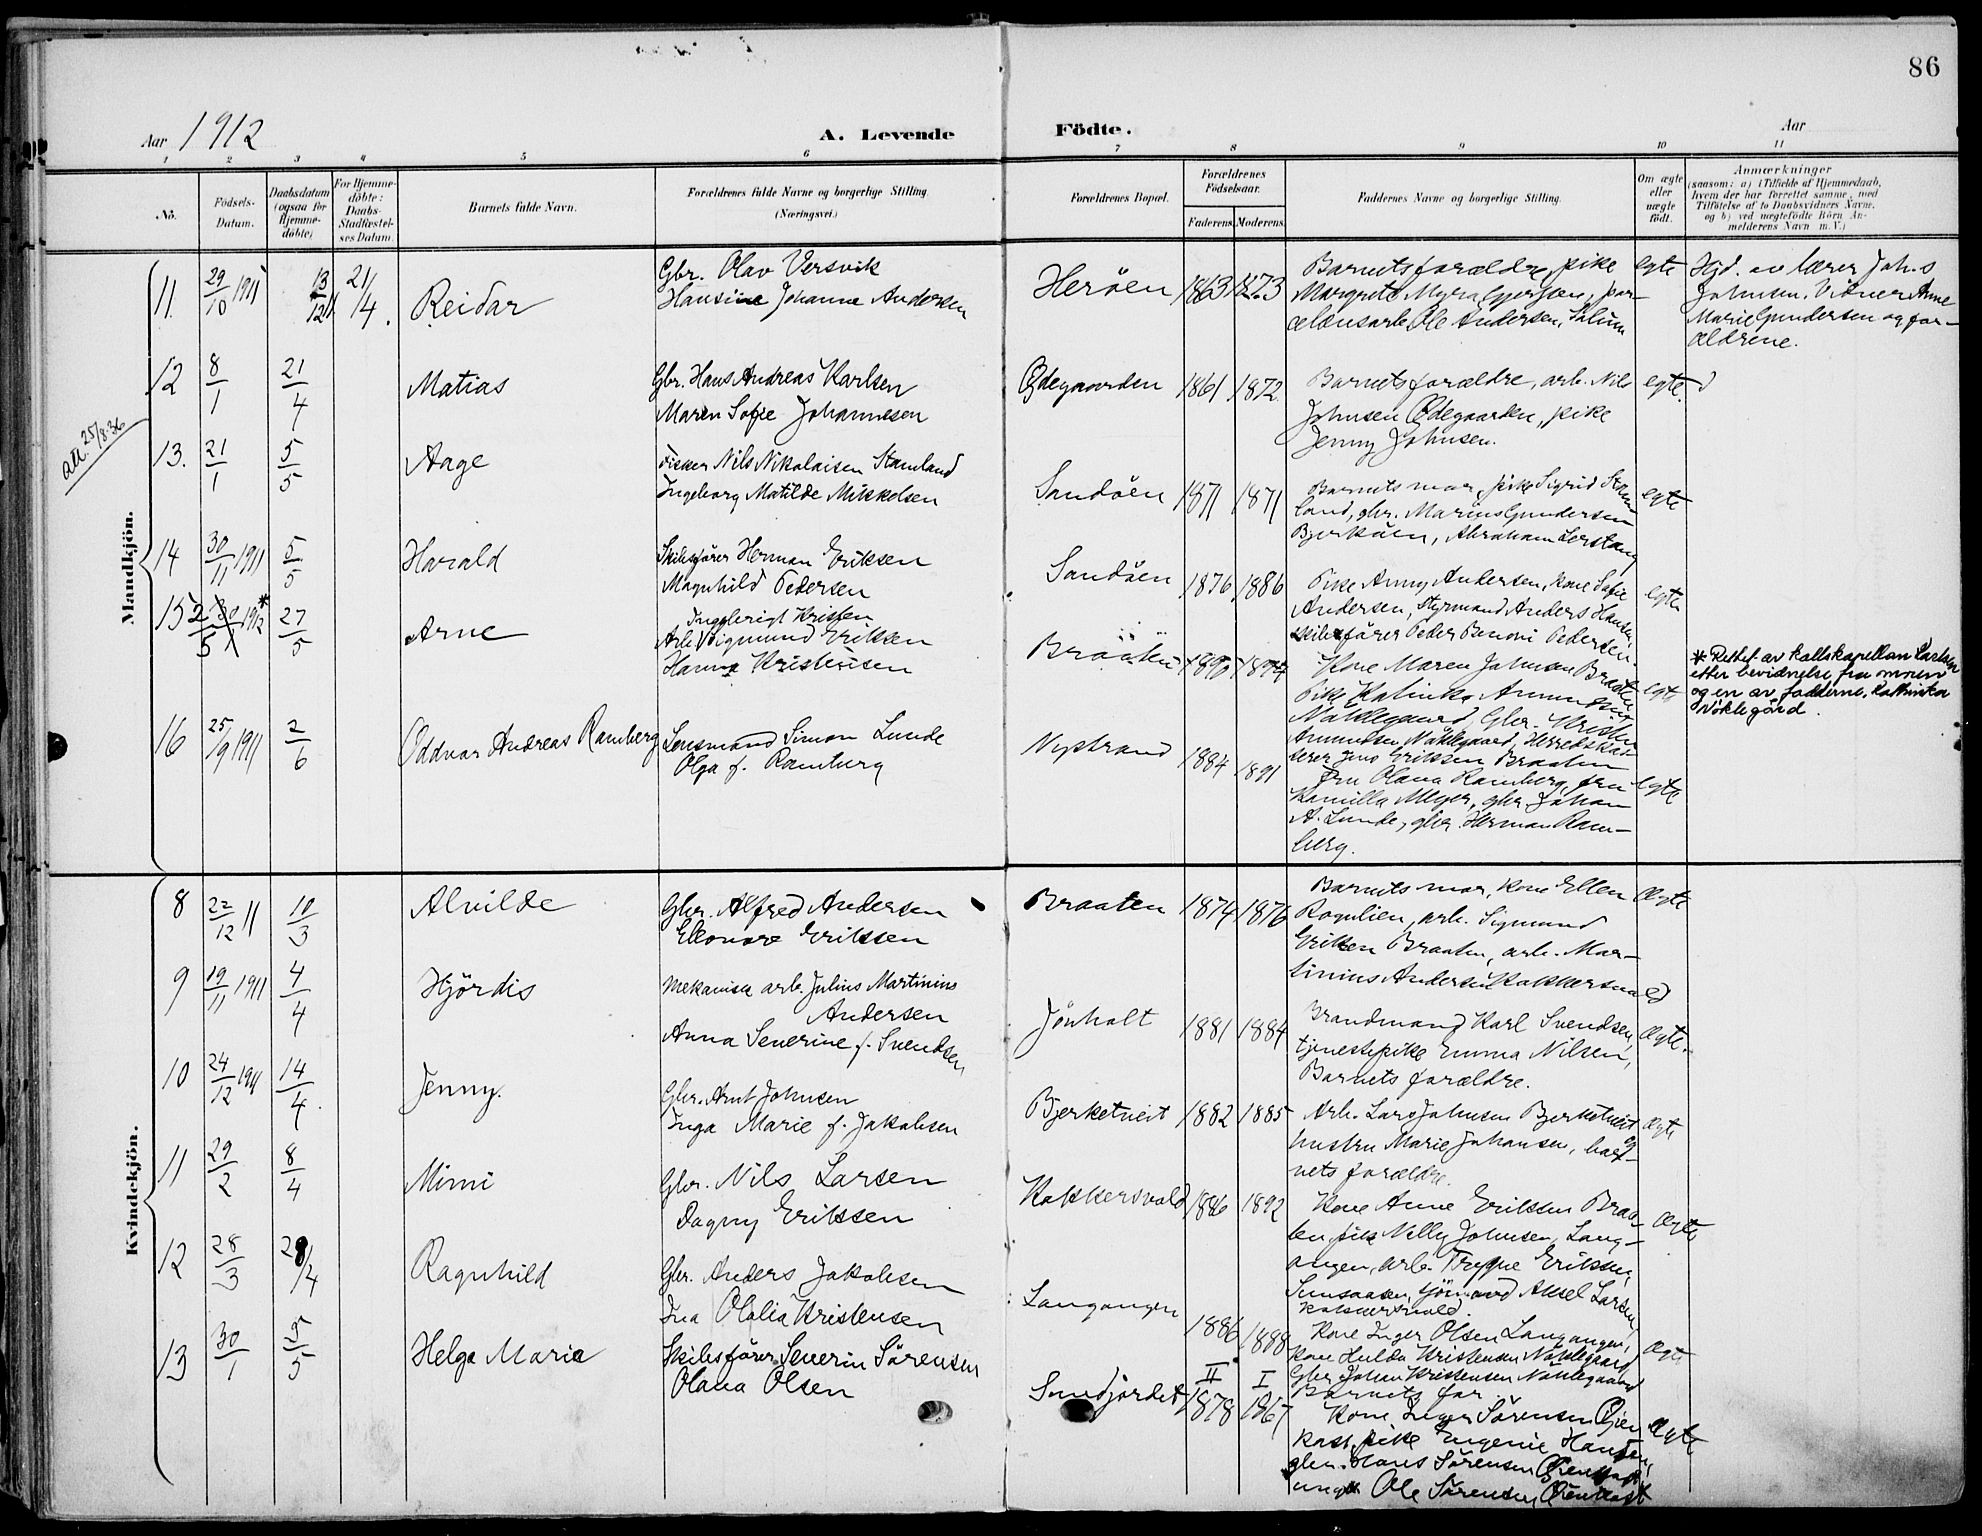 86
Aar 1912
A. Levende
Födte.
Aar
1 2 3 4 5 6 7 8 9 10 11
No.
Födsels-
Datum.
Daabsdatum
(ogsaa for
Hjemme-
döbte)
For Hjemme-
döbte:
Daabs-
Stadfæstel-
ses Datum
Barnets fulde Navn.
Forældrenes fulde Navne og borgerlige Stilling.
(Næringsvei.)
Forældrenes Bopæl.
Forældrenes
Födselsaar.
Faderens Moderens
Faddernes Navne og borgerlige Stilling.
Om ægte
eller
uægte
født.
Anmærkninger
(saasom: a) i Tilfælde af Hjemmedaab,
hvem der har forrettet samme, med
Tilföielse af to Daabsvidners Navne,
og b) ved uægtefödte Börn An-
melderens Navn m. V.)
Mandkjön.
att. 25/8.36
11. 29/10 1911 13/12 11 21/4. Reidar
Gbr. Olav Versvik
Hansine Johanne Andersen
Heröen 1863 1873
Barnets forældre, pike
Margrete Myra Gjersen, par-
celænsarb. Ole Andersen, Solum
egte
Hjd. av lærer Johs
Johnsen. Vidner Anne
Marie Gundersen og for-
ældrene.
12 8/1 21/4 Matias
Gbr. Hans Andreas Karlsen
Maren Sofie Johannesen
Ødegaarden 1861 1872.
Barnets forældre, arb. Nils
Johnsen Ødegaarden, pike
Jenny Johnsen.
egte.
13. 21/1 5/5 Aage
Fisker Nils Nikolaisen Stamland
Ingeborg Matilde Mikkelsen
Sandöen 1871 1871
Barnets mor, pike Sigrid Stam
land, gbr. Marius Gundersen
Bjerköen, Abraham Lerstang
egte
14 30/11 1911 5/5 Harald
Skibsfører Herman Eriksen
Magnhild Pedersen
Sandöen 1876 1886
Pike Anny Andersen, kone Sofie
Andersen, Styrmand Anders Hansen,
skibsfører Peder Benoni Pedersen.
egte
15 2/5 30/1 1912 * 27/5 Arne
Arb. Sigmund Eriksen
Hanna Kristensen
Braaten 1890 1894
Kone Maren Johnsen Braaten
Pike Kalinka Amundsen
Nøklegaard, Gbr. Kristen
Amundsen Nøklegaard, Herredskas-
serer Jens Eriksen Braaten
egte
* Rettet av kallskapellan Carlsen
etter bevidnelse fra moren
og en av fadderne, Kathinka
Nöklegård.
16 25/9 1911 2/6 Oddvar Andreas Ramberg
Lensmand Simon Lunde
Olga f. Ramberg
Nystrand 1884 1891
Fru Olava Ramberg, fru
Kamilla Meyer, gbr. Johan
A. Lunde, gbr. Herman Ram-
berg.
egte
Kvindekjön.
8 22/12 11 10/3 Alvilde
Gbr. Alfred Andersen
Eleonore Eriksen
Braaten 1874 1876
Barnets mor, kone Ellen
Rognlien, arb. Sigmund
Eriksen Braaten, arb. Mar-
tinius Andersen Kokkersvold
Ægte
9 19/11 1911 4/4 Hjördis
mekanisk arb. Julius Martinius
Andersen
Anna Severine f. Svendsen
Jönholt 1881 1884
Brandmand Karl Svendsen,
tjenestepike Emma Nilsen,
Barnets forældre.
Ægte.
10 24/12 1911 14/4. Jenny.
Gbr. Arnt Johnsen
Inga Marie f. Jakobsen
Bjerketveit 1882 1885
Arb. Lars Johnsen Bjerketveit og
hustru Marie Johansen, bar-
nets forældre.
Ægte
11 29/2 8/4 Mimi
Gbr. Nils Larsen
Dagny Eriksen
Kokkersvold 1886 1892
Kone Anne Eriksen Braa-
ten, pike Nelly Johnsen, Lang-
angen, arb. Trygve Eriksen,
sjömand Aksel Larsen,
Kokkersvold
Ægte
12 28/3 28/4 Ragnhild
Gbr. Anders Jakobsen
Ina Olalia Kristensen
Langangen 1886 1888
Kone Inger Olsen Langangen,
kone Hulda Kristensen Nøklegaard
Gbr Johan Kristensen Nøklegaard
Barnets far.
Ægte
13 30/1 5/5 Helga Marie
Skibsfører Severin Sörensen
Olava Olsen
Sundjordet II 1878 I 1867
Kone Inger Sörensen Øien
kast, pike Eugenie Hansen,
gbr. Hans Sörensen Øienkast,
ungk Ole Sörensen Øienkast
Ægte